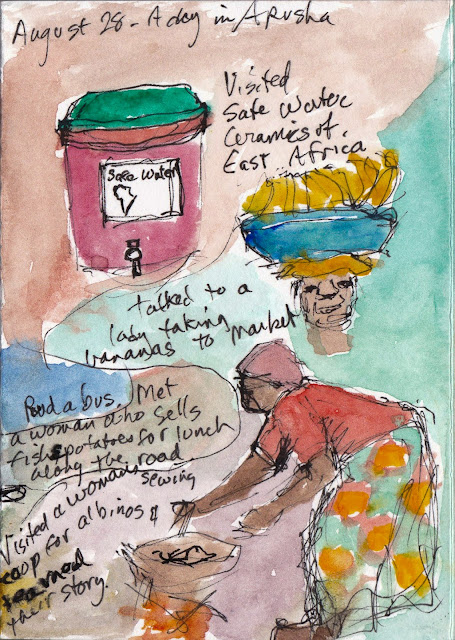 August 28 - A day in Arusha
Visited
Safe Water
Ceramics of
East Africa
Safe Water
talked to a
lady taking
bananas to market
a bus. Met
a woman who sells
fish & potatoes for lunch
along the road
Visited a womans sewing
coop for albinos &
learned
their story.